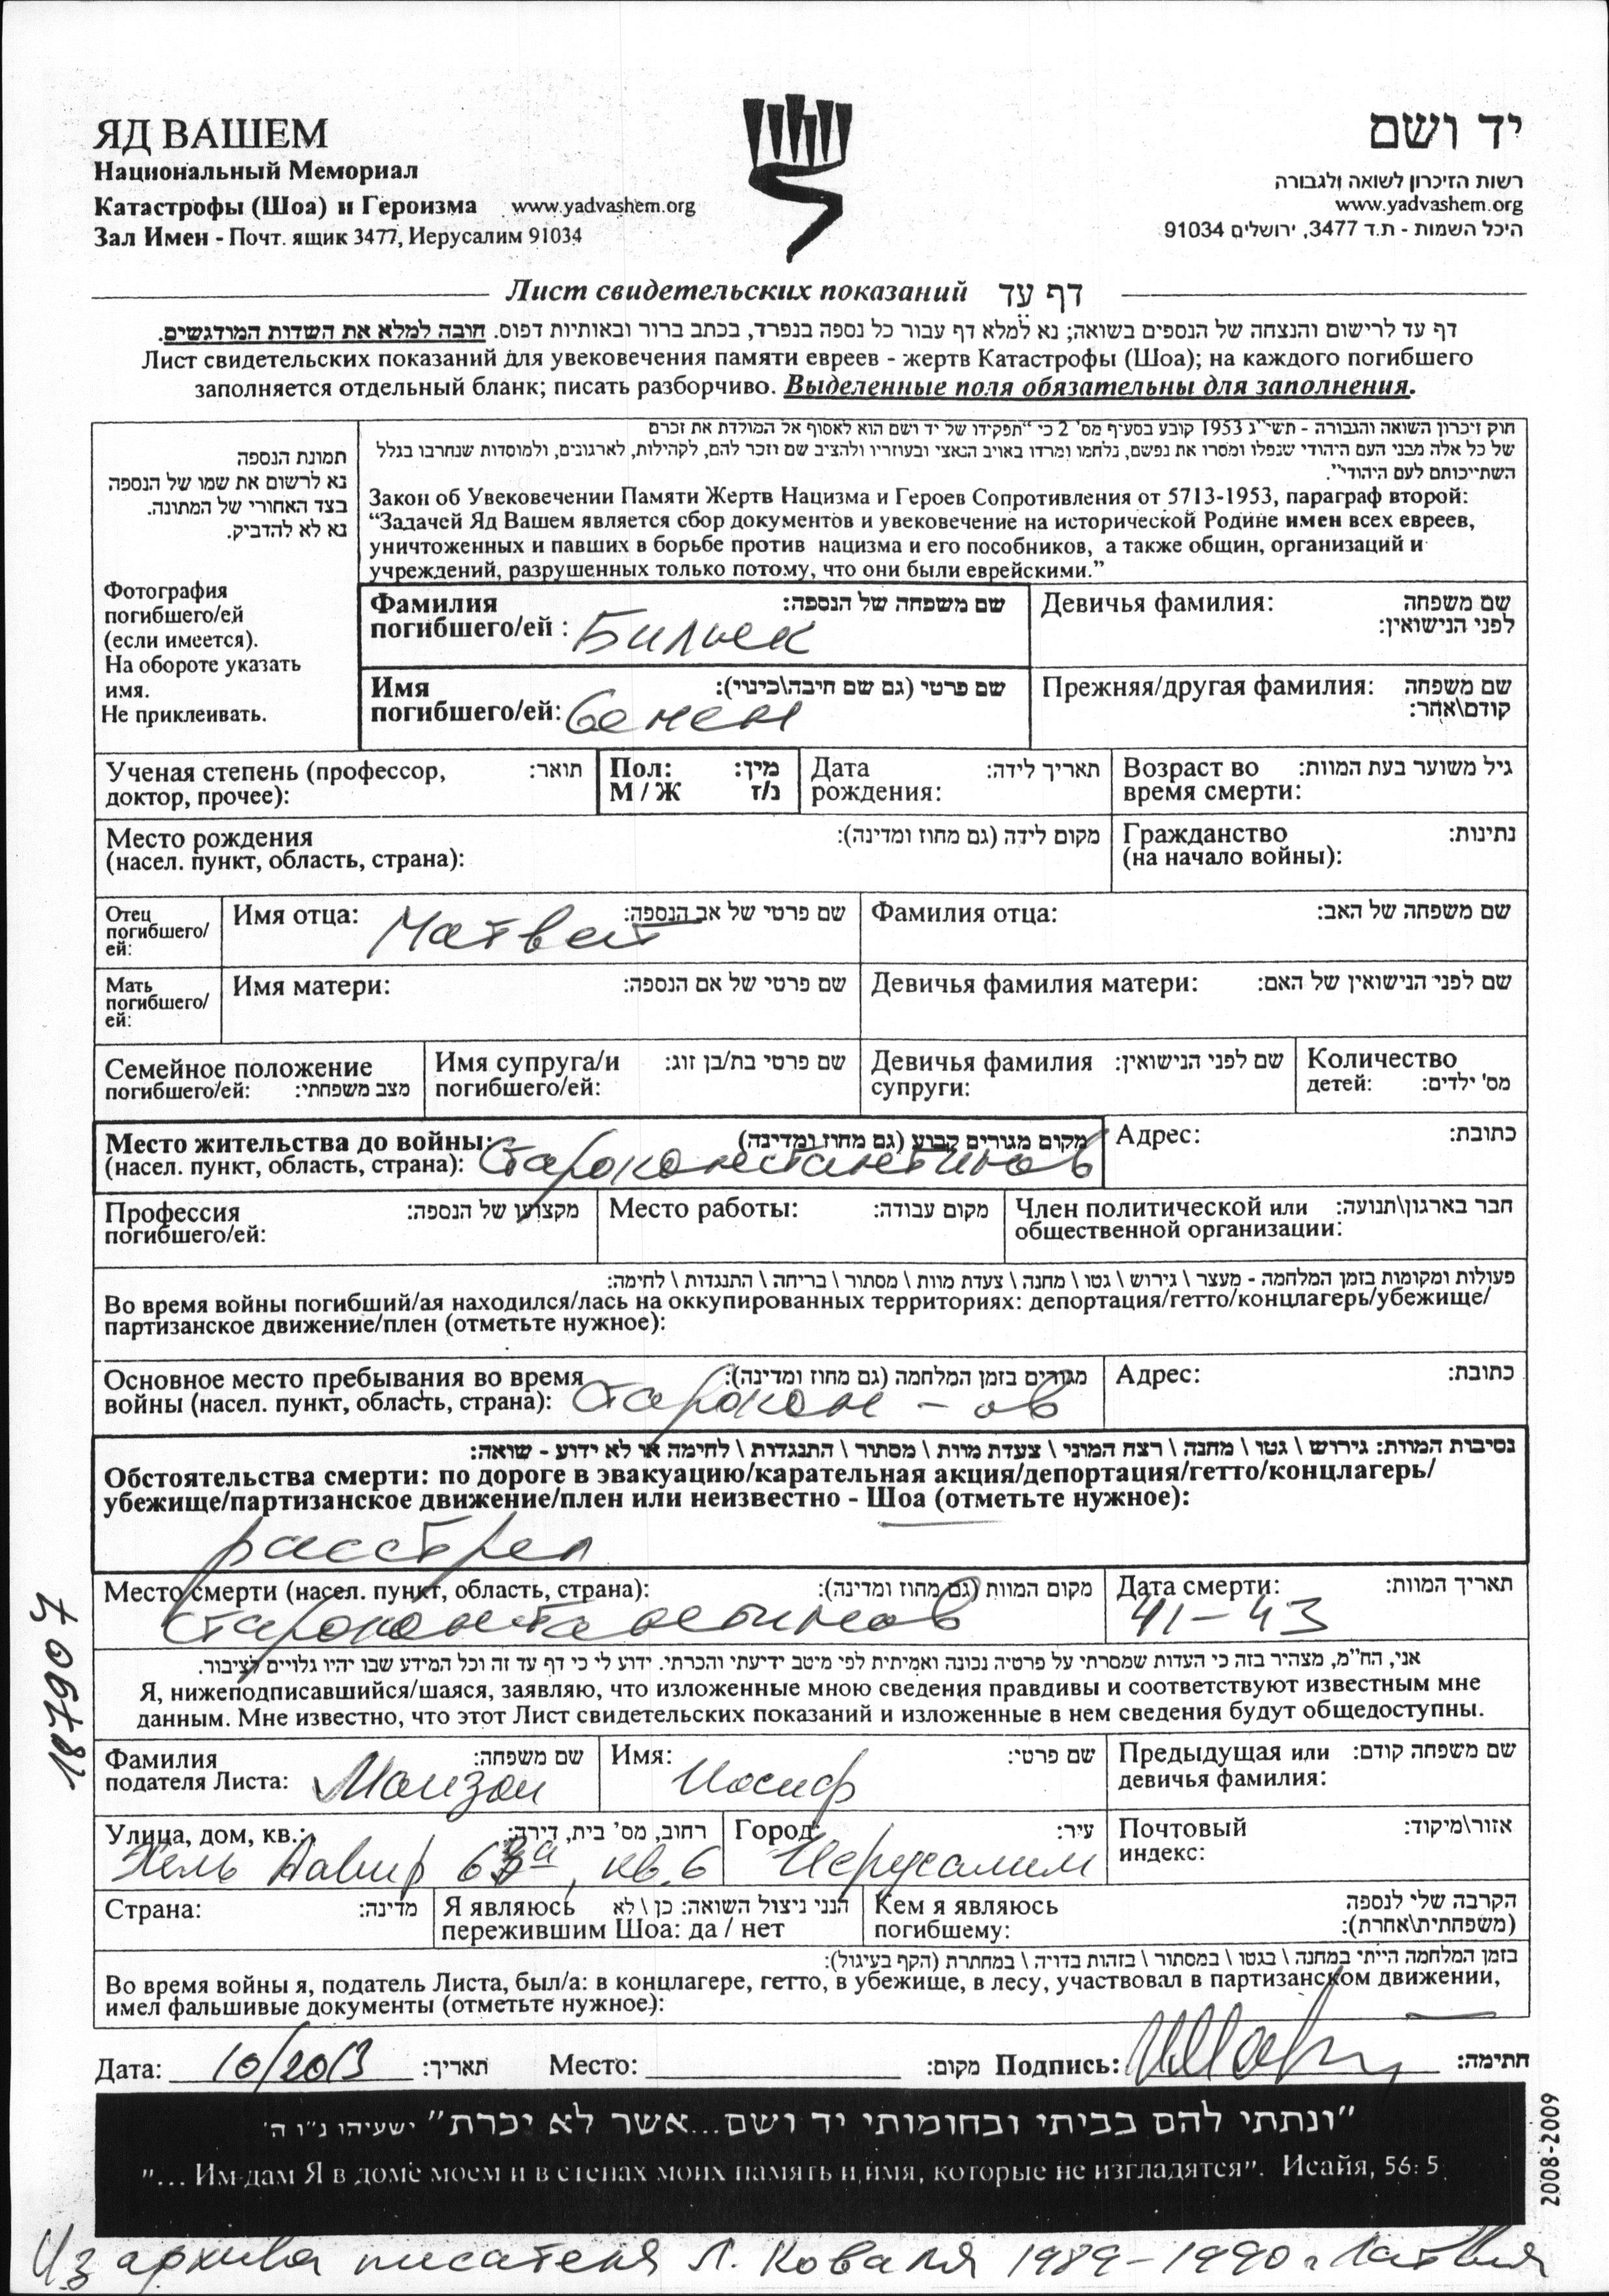 ЯД ВАШЕМ
Национальный Мемориал
Катастрофы (Шоа) и Героизма www.yadvashem.org
Зал Имен - Почт. ящик 3477, Иерусалим 91034
יד ושם
רשות הזיכרון לשואה ולגבורה
www.yadvashem.org
היכל השמות - ת.ד 3477, ירושלים 91034
Лист свидетельских показаний דף עֵד
דף עד לרישום והנצחה של הנספים בשואה; נא למלא דף עבור כל נספה בנפרד, בכתב ברור ובאותיות דפוס. חובה למלא את השדות המודגשים.
Лист свидетельских показаний для увековечения памяти евреев - жертв Катастрофы (Шоа); на каждого погибшего
заполняется отдельный бланк; писать разборчиво. Выделенные поля обязательны для заполнения.
תמונת הנספה
נא לרשום את שמו של הנספה
בצד האחורי של המתונה.
נא לא להדביק.
Фотография
погибшего/ей
(если имеется).
На обороте указать
имя.
Не приклеивать.
חוק זיכרון השואה והגבורה - תשי"ג 1953 קובע בסעיף מס' 2 כי "תפקידו של יד ושם הוא לאסוף אל המולדת את זכרם
של כל אלה מבני העם היהודי שנפלו ומסרו את נפשם, נלחמו ומרדו באויב הנאצי ובעוזריו ולהציב שם וזכר להם, לקהילות, לארגונים, ולמוסדות שנחרבו בגלל
השתייכותם לעם היהודי".
Закон об Увековечении Памяти Жертв Нацизма и Героев Сопротивления от 5713-1953, параграф второй:
“Задачей Яд Вашем является сбор документов и увековечение на исторической Родине имен всех евреев,
уничтоженных и павших в борьбе против нацизма и его пособников, а также общин, организаций и
учреждений, разрушенных только потому, что они были еврейскими.”
Фамилия שם משפחה של הנספה:
погибшего/ей : Бильек
Девичья фамилия: שם משפחה
לפני הנישואין:
Имя שם פרטי (גם שם חיבה\כינוי):
погибшего/ей: Семен
Прежняя/другая фамилия: שם משפחה
קודם\אחר:
Ученая степень (профессор, תואר:
доктор, прочее):
Пол: מין:
М / Ж ז/נ
Дата תאריך לידה:
рождения:
Возраст во גיל משוער בעת המוות:
время смерти:
Место рождения מקום לידה (גם מחוז ומדינה):
(насел. пункт, область, страна):
Гражданство נתינות:
(на начало войны):
Отец
погибшего/
ей:
Имя отца: שם פרטי של אב הנספה:
Матвей
Фамилия отца: שם משפחה של האב:
Мать
погибшего/
ей:
Имя матери: שם פרטי של אם הנספה:
Девичья фамилия матери: שם לפני הנישואין של האם:
Семейное положение
погибшего/ей: מצב משפחתי:
Имя супруга/и שם פרטי בת/בן זוג:
погибшего/ей:
Девичья фамилия שם לפני הנישואין:
супруги:
Количество
детей: מס' ילדים:
Место жительства до войны: מקום מגורים קבוע (גם מחוז ומדינה)
(насел. пункт, область, страна): Староконстантинов
Адрес: כתובת:
Профессия מקצוען של הנספה:
погибшего/ей:
Место работы: מקום עבודה:
Член политической или חבר בארגון\תנועה:
общественной организации:
פעולות ומקומות בזמן המלחמה - מעצר \ גירוש \ גטו \ מחנה \ צעדת מוות \ מסתור \ בריחה \ התנגדות \ לחימה:
Во время войны погибший/ая находился/лась на оккупированных территориях: депортация/гетто/концлагерь/убежище/
партизанское движение/плен (отметьте нужное):
Основное место пребывания во время מגורים בזמן המלחמה (גם מחוז ומדינה):
войны (насел. пункт, область, страна): Старокон - ов
Адрес: כתובת:
נסיבות המוות: גירוש \ גטו \ מחנה \ רצח המוני \ צעדת מוות \ מסתור \ התנגדות \ לחימה או לא ידוע - שואה:
Обстоятельства смерти: по дороге в эвакуацию/карательная акция/депортация/гетто/концлагерь/
убежище/партизанское движение/плен или неизвестно - Шоа (отметьте нужное):
расстрел
Место смерти (насел. пункт, область, страна): מקום המוות (גם מחוז ומדינה):
Староконстантинов
Дата смерти: תאריך המוות:
41-43
אני, הח"מ, מצהיר בזה כי העדות שמסרתי על פרטיה נכונה ואמיתית לפי מיטב ידיעתי והכרתי. ידוע לי כי דף עד זה וכל המידע שבו יהיו גלויים לציבור.
Я, нижеподписавшийся/шаяся, заявляю, что изложенные мною сведения правдивы и соответствуют известным мне
данным. Мне известно, что этот Лист свидетельских показаний и изложенные в нем сведения будут общедоступны.
187907
Фамилия שם משפחה:
подателя Листа: Маизон
Имя: שם פרטי:
Иосиф
Предыдущая или שם משפחה קודם:
девичья фамилия:
Улица, дом, кв.: רחוב, מס' בית, דירה:
Хель Хавир 63а, кв. 6
Город: עיר:
Иерусалим
Почтовый אזור\מיקוד:
индекс:
Страна: מדינה:
Я являюсь הנני ניצול השואה: כן \ לא
пережившим Шоа: да / нет
Кем я являюсь הקרבה שלי לנספה
погибшему: (משפחתית\אחרת):
בזמן המלחמה הייתי במחנה \ בגטו \ במסתור \ בזהות בדויה \ במחתרת (הקף בעיגול):
Во время войны я, податель Листа, был/а: в концлагере, гетто, в убежище, в лесу, участвовал в партизанском движении,
имел фальшивые документы (отметьте нужное):
Дата: 10/2013 תאריך: Место: מקום: Подпись: חתימה:
"ונתתי להם בביתי ובחומותי יד ושם...אשר לא יכרת" ישעיהו נ"ו ה'
"... Им дам Я в доме моем и в стенах моих память и имя, которые не изгладятся". Исайя, 56: 5
2008-2009
Из архива писателя Л. Коваля 1989-1990 г. Латвия